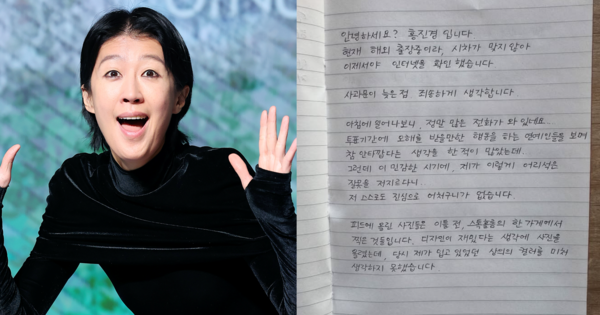 안녕하세요? 홍진경 입니다
현재 해외 출장중이라, 시차가 맞지 않아
이제서야 인터넷을 확인 했습니다
사과문이 늦은점 죄송하게 생각합니다
아침에 일어나보니 정말 많은 전화가 와 있어요..
투표기간에 오해를 받을만한 행동을 하는 연예인들을 보며
참 안타깝다는 생각을 한 적이 많았는데
그런데 이 민감한 시기에, 제가 이렇게 어리석은
잘못을 저지르다니..
저 스스로도 진심으로 어처구니가 없습니다.
피드에 올린 사진들은 이틀 전, 스톡홀름의 한 가게에서
찍은 것들입니다. 디자인이 재밌다는 생각에 사진을
올렸는데, 당시 제가 입고 있었던 상의의 컬러를 미처
생각하지 못했습니다.